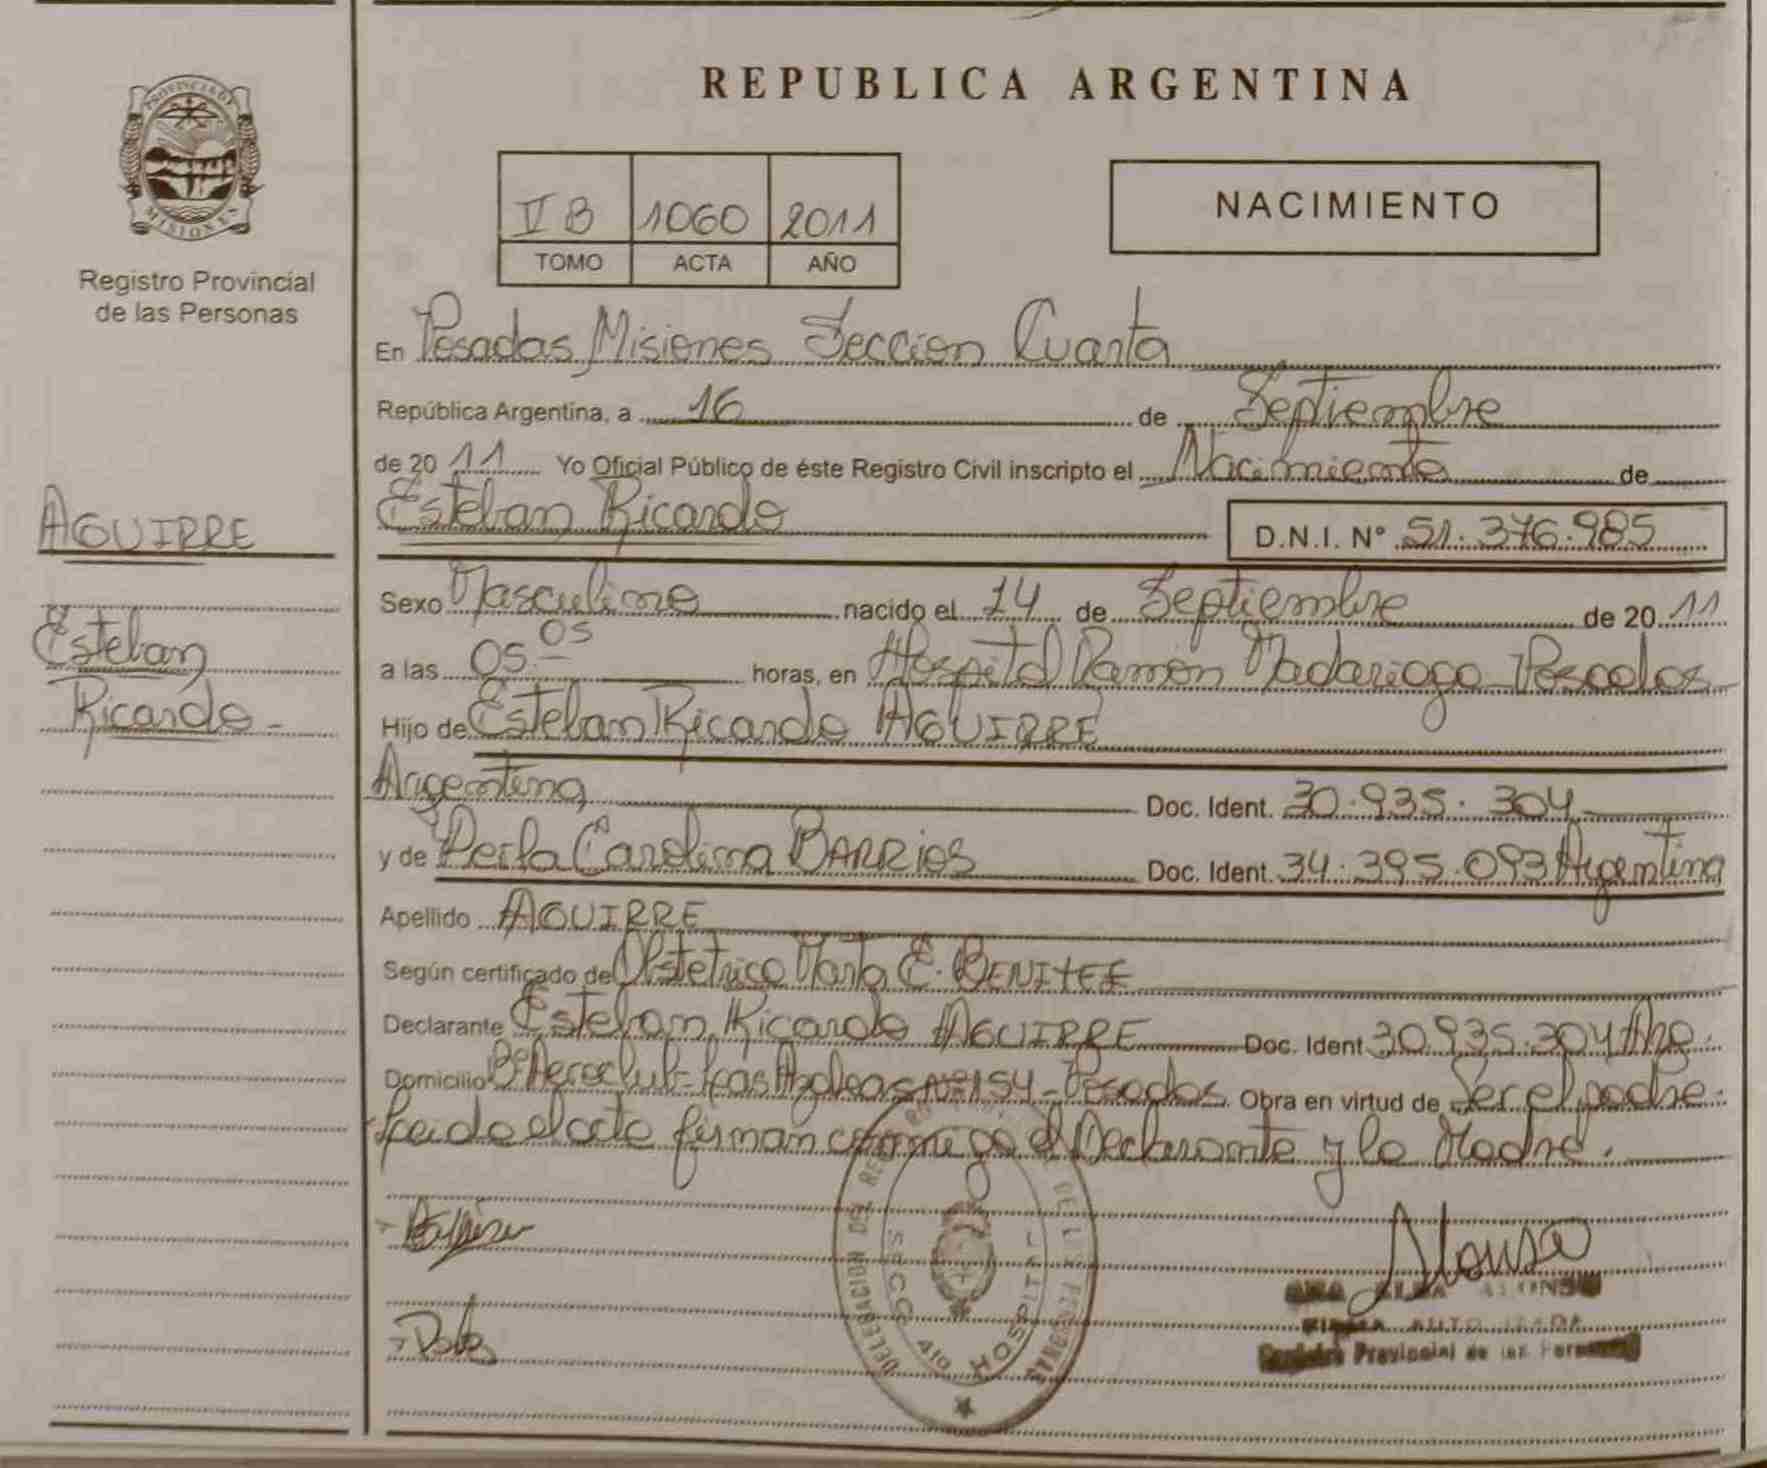 PROVINCIA DE
MISIONES
Registro Provincial
de las Personas
AGUIRRE
Esteban
Ricardo -
REPUBLICA ARGENTINA
II B 1060 2011
TOMO ACTA AÑO
NACIMIENTO
En Posadas Misiones Seccion Cuarta
República Argentina, a 16 de Septiembre
de 20 11 Yo Oficial Público de éste Registro Civil inscripto el Nacimiento de
Esteban Ricardo D.N.I. N° 51.376.985
Sexo Masculino nacido el 14 de Septiembre de 20 11
a las 05.05 horas, en Hospital Ramón Madariaga - Posadas
Hijo de Esteban Ricardo AGUIRRE
Argentina Doc. Ident. 30.935.304
y de Perla Carolina BARRIOS Doc. Ident. 34.395.093 Argentina
Apellido AGUIRRE
Según certificado de Obstetrica Marta E. BENITEZ
Declarante Esteban Ricardo AGUIRRE Doc. Ident 30.935.304
Domicilio B° Aeroclub - Nº 154 - Posadas Obra en virtud de Ser el padre.
Leido el acta firman conmigo el Declarante y la Madre.
DELEGACION DEL DE LAS PERSONAS
SECC 4TO HOSPITAL
Alonso
ANA ALBA ALONSO
FIRMA AUTORIZADA
Registro Provincial de las Personas